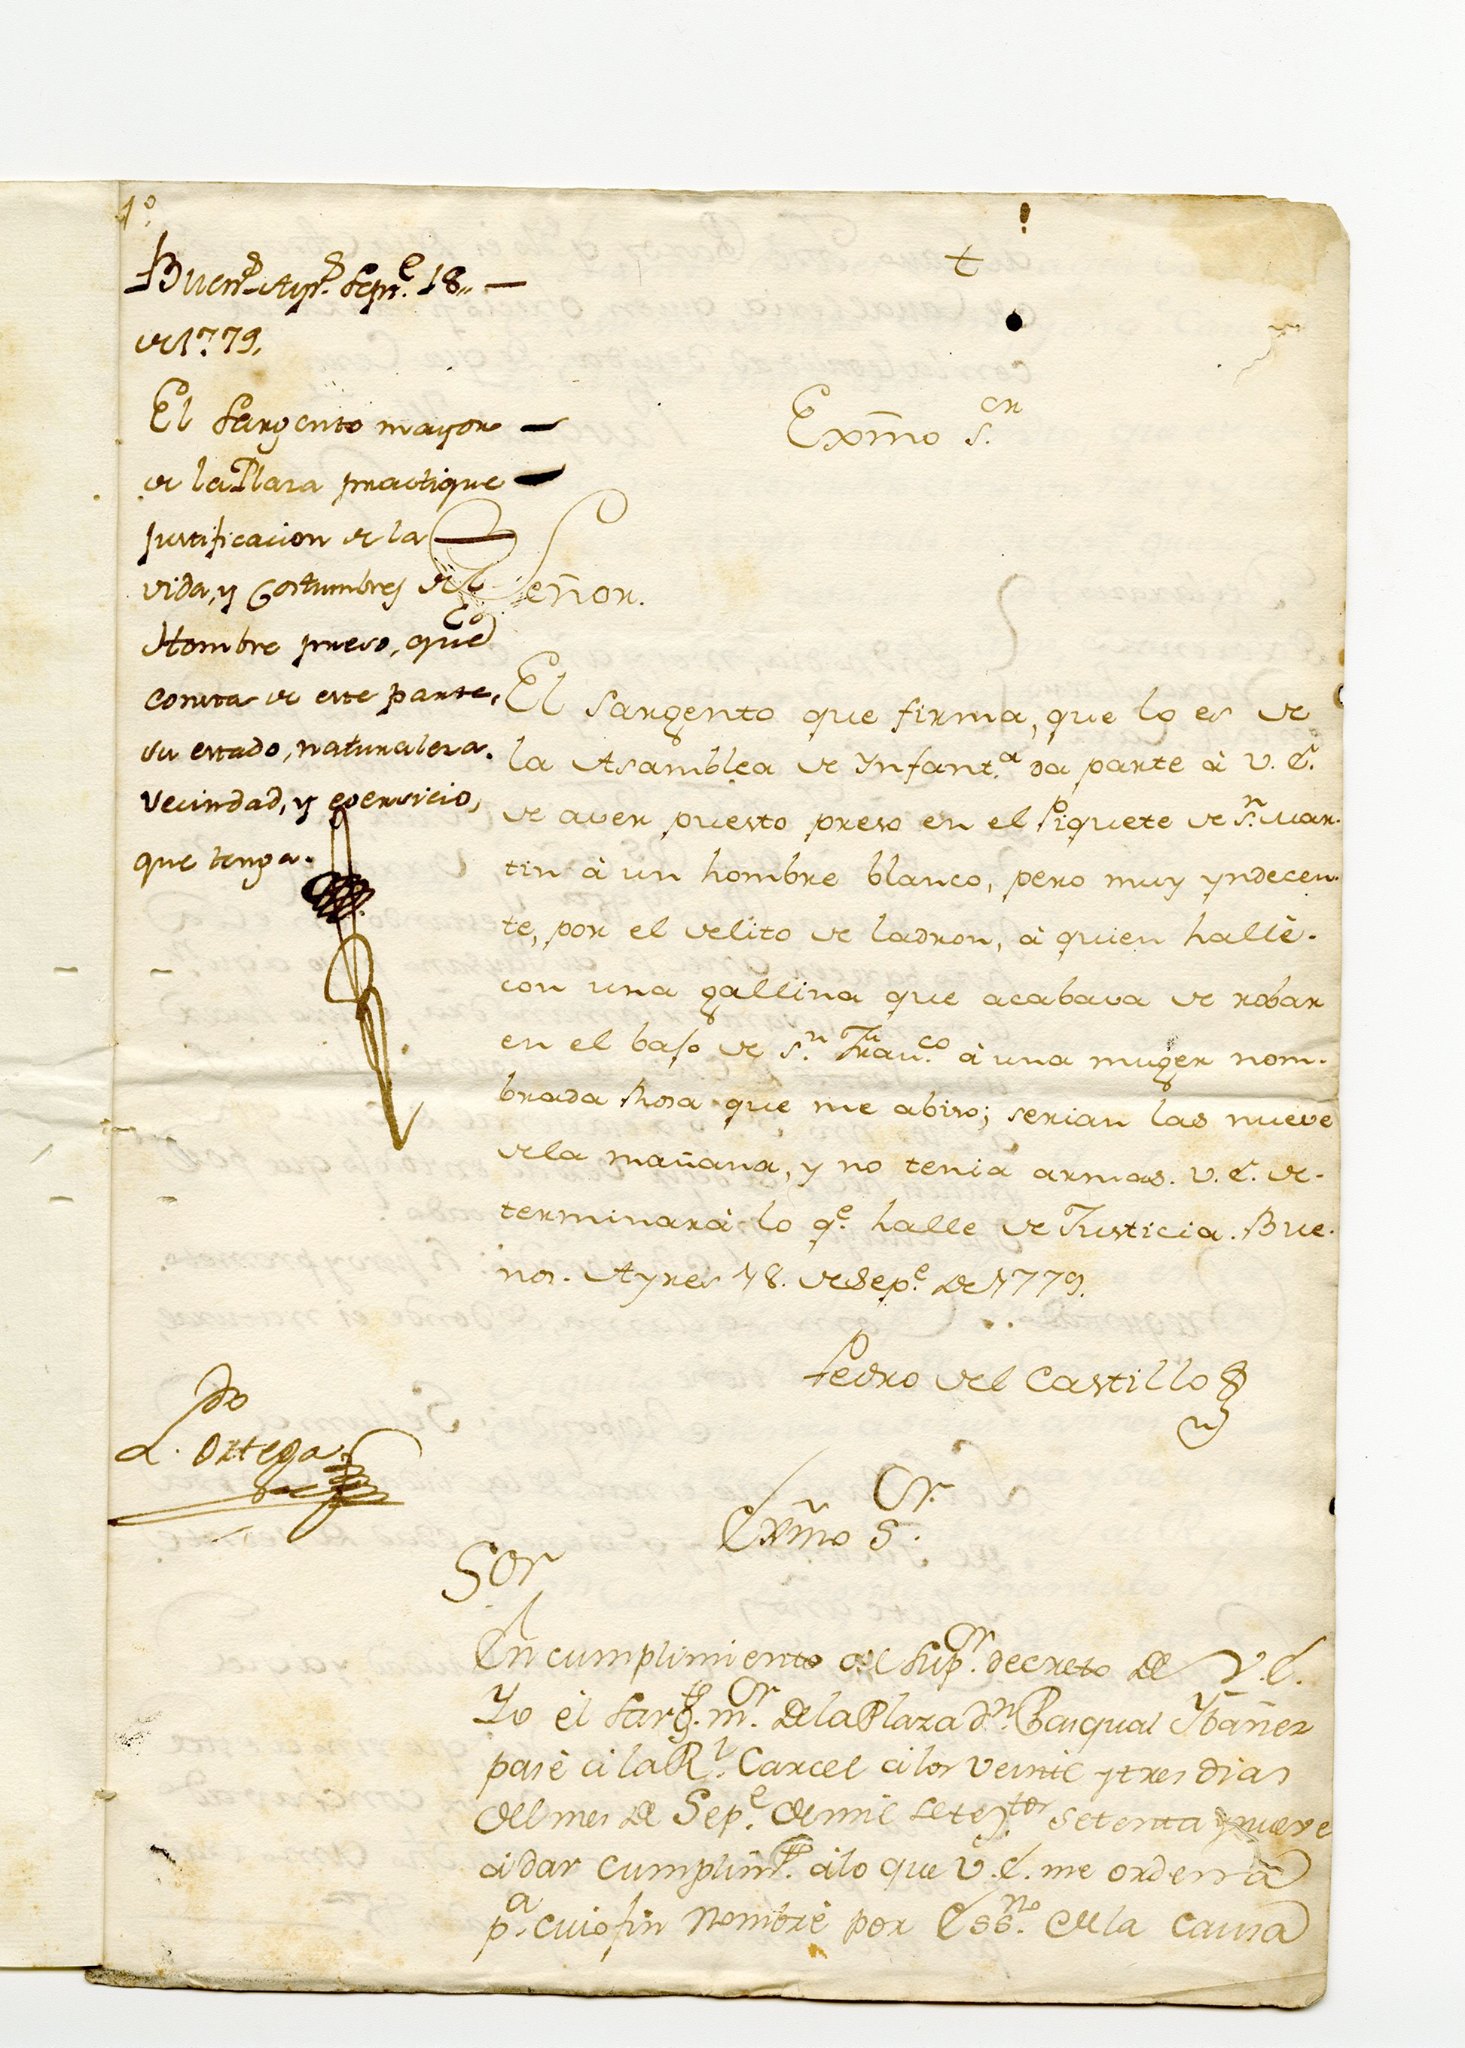 1º
Buenˢ Ayrˢ Sepᵉ. 18,, —
de 1779,
El Sargento mayor —
de la Plaza practique —
justificacion de la —
vida, y Costumbres del
Hombre preso, que
consta de este parte,
su estado, naturaleza.
Vecindad, y exersicio,
que tenga.
Dᵒ
L. Ortega
+
Exm̃o S.ᵒʳ
Señor.
El Sargento que firma, que lo es de
la Asamblea de Ynfant.ᵃ da parte à V. E.
de aver puesto preso en el Piquete de Sⁿ. Mar-
tin à un hombre blanco, pero muy yndecen-
te, por el delito de ladron, à quien hallè.
con una gallina que acababa de robar
en el baso de S.ⁿ Franᶜᵒ à una muger nom-
brada Rosa que me abiso; serian las nueve
de la mañana, y no tenia armas. V. E. de-
terminarà lo qᵉ. halle de Justicia. Bue-
nos. Ayres 18. de Sepᵉ. de 1779.
Pedro del Castillo
Exm̃o S.ᵒʳ
Sor
En cumplimiento al Supᵒʳ. decreto de V. E.
Yo èl Sargᵗᵒ. mᵒʳ. de la Plaza dⁿ. Pasqual Ybañez
pasè à la Rˡ. Carcel à los veinte y tres dias
del mes de Sepᵉ. de mil setesᵗᵒˢ setenta y nueve
à dar cumplimᵗᵒ. à lo que V. E. me ordena
pᵃ. cuio fin Nombrè por Essⁿᵒ. de la Causa